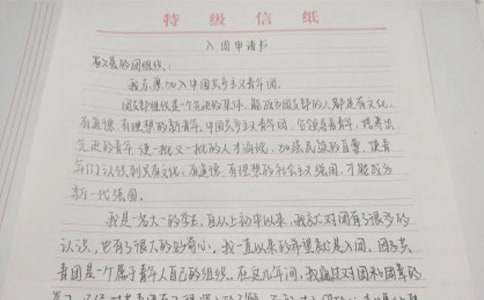 特级信纸
入团申请书
敬爱的团组织:
我志愿加入中国共产主义青年团。
团支部组织是一个先进的集体,能成为团支部的人都是有文化,
有道德、有理想的新青年。中国共产主义青年团,它领导着青年,培养出
先进的青年,使一批又一批的人才涌现,加添民族的重量,使青
年们认识到只有文化,有道德,有理想的社会主义强国,才能成为
新一代强国。
我是一名大一的学生,自从上初中以来,我就对团有了很多的
认识,也有了很大的好奇心。我一直以来的希望就是入团。团
青团是一个属于青年人自己的组织。在这几年间,我通过对团和团章的